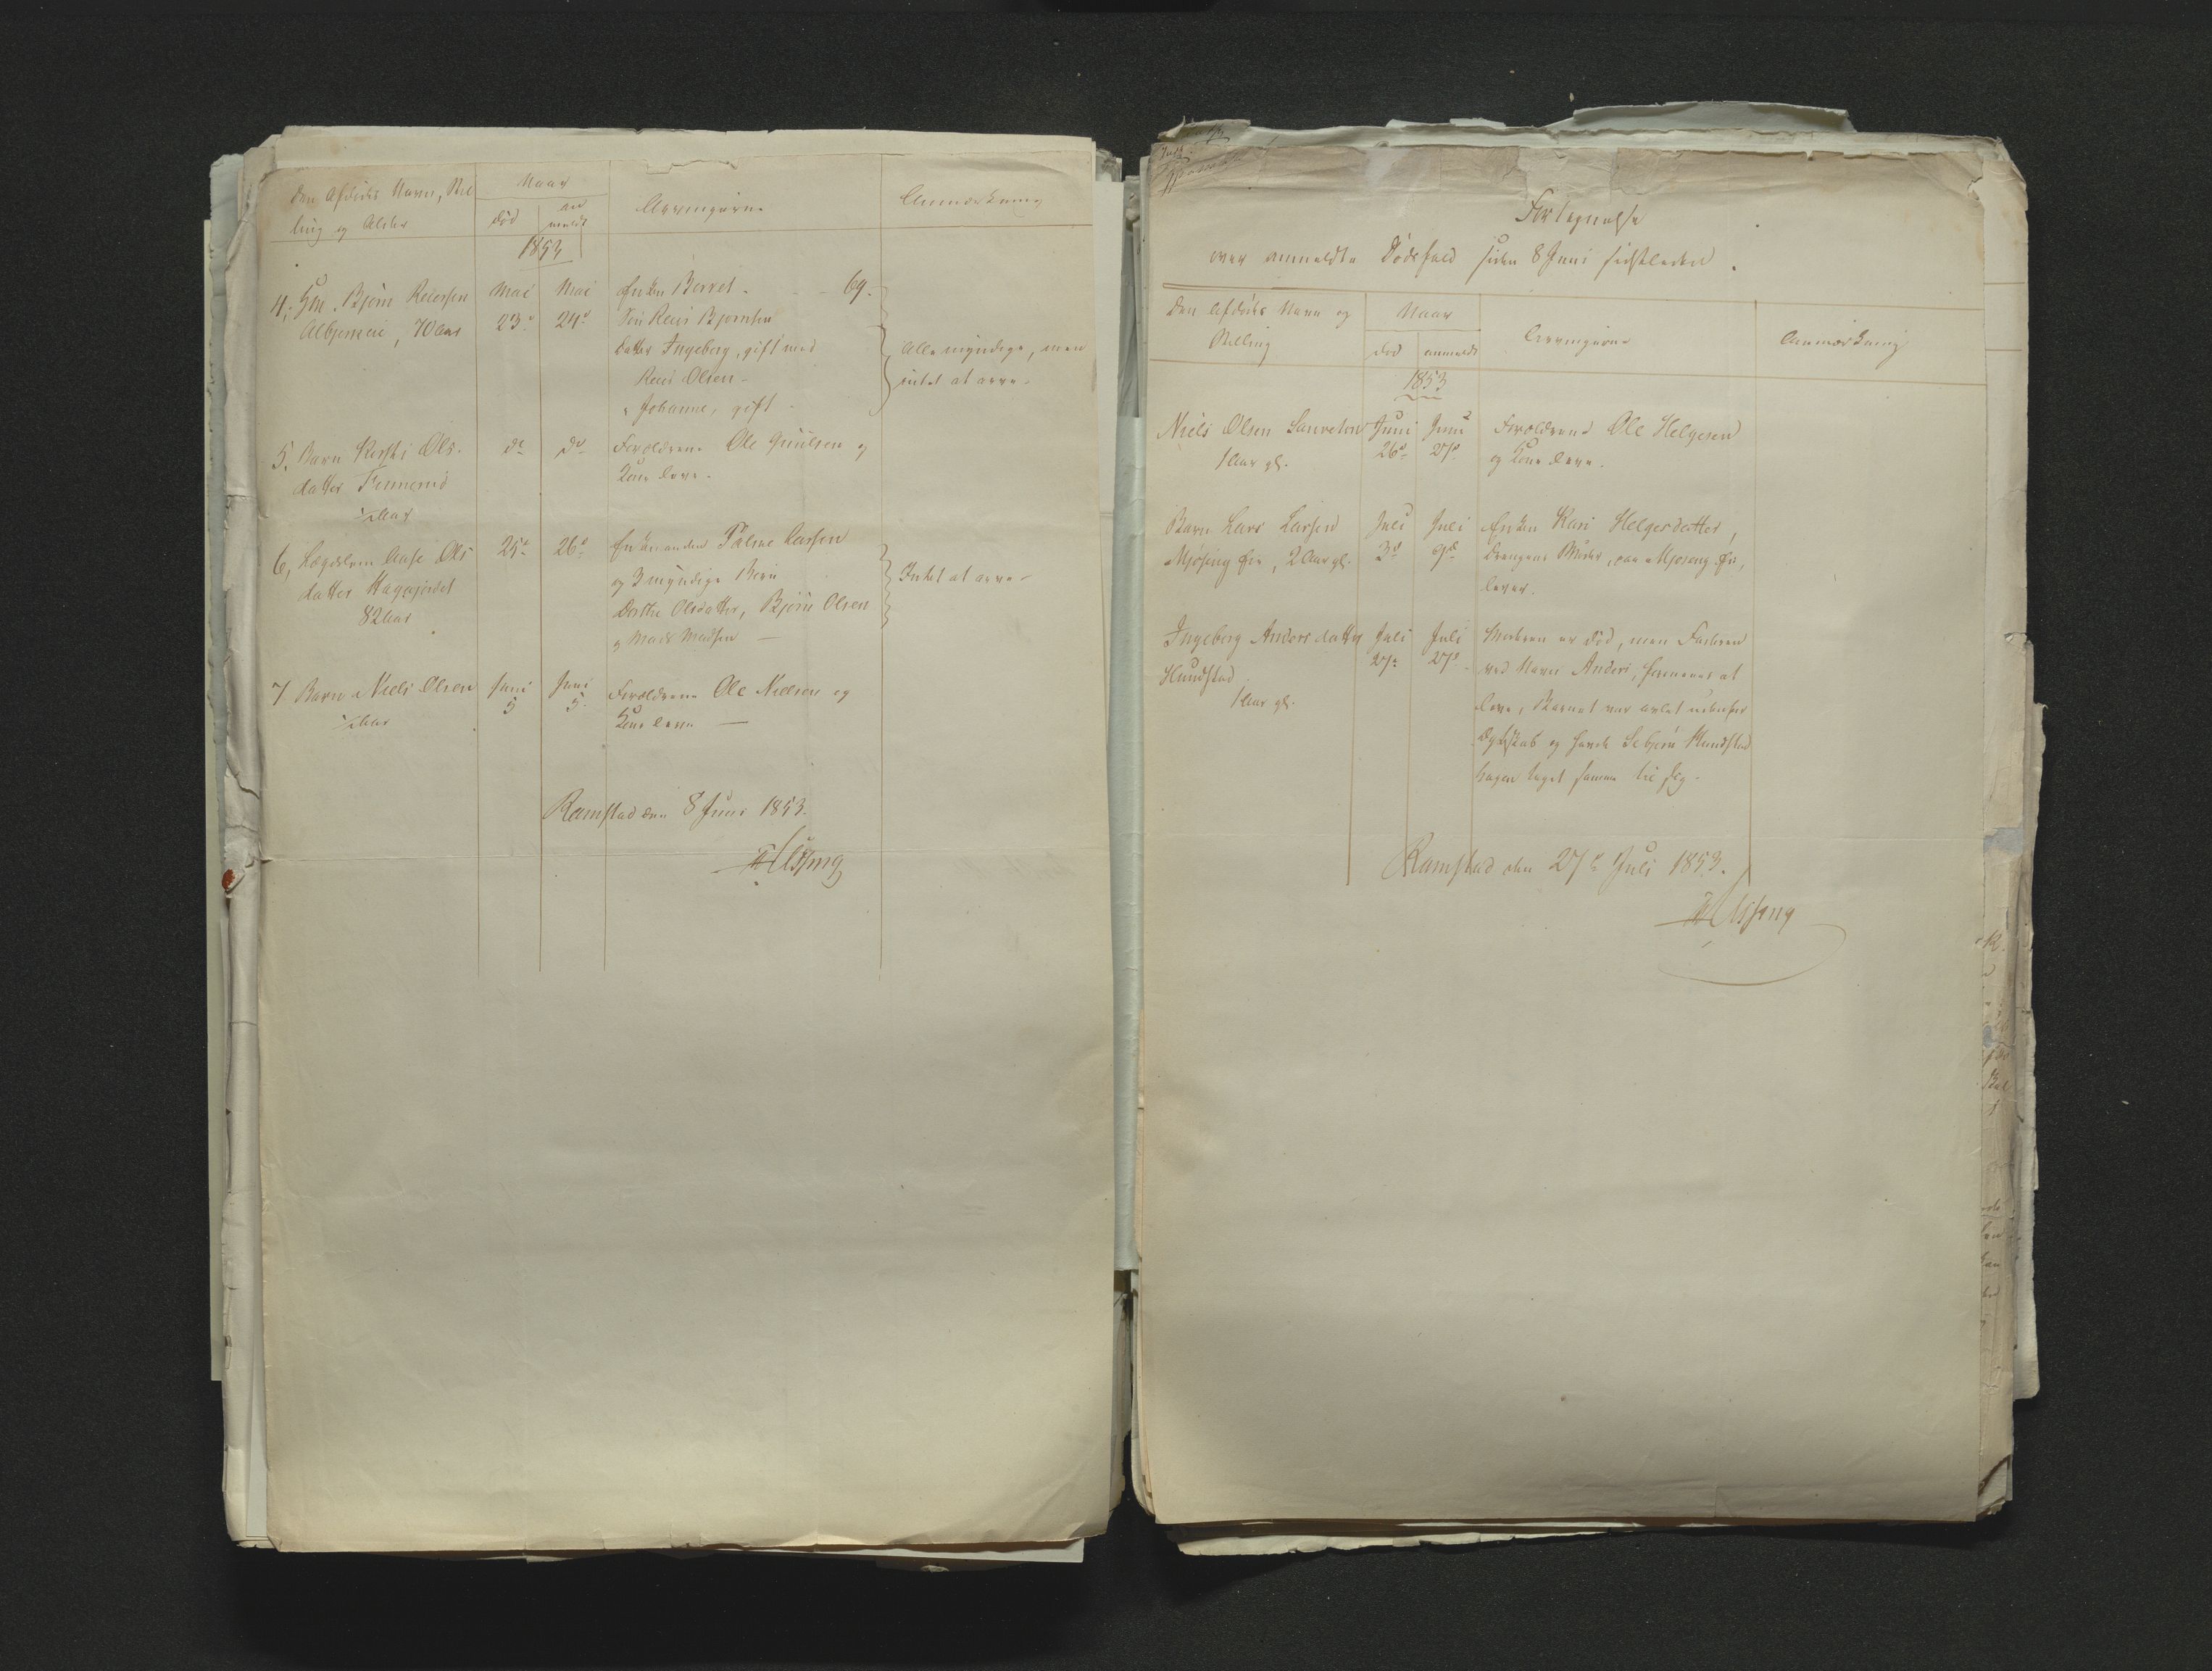 Den Afdødes Navn, Stil
ling og Alder
Naar
død
an
meldt
Arvingerne
Anmærkning
1853
4, Gm. Bjørn Reiersen
Albjerneie, 70 Aar
Mai
23de
Mai
24de
Enken Berret. 69.
Søn Reier Bjørnsen
Datter Ingeborg, gift med
Reier Olsen -
" Johanne, gift -
Alle myndige, men
intet at arve.
5, Barn Kersti Ols-
datter Finnerud
½ Aar
do
do
Forældrene Ole Guulsen og
Kone leve.
6, Lægdslem Aase Ols
datter Hagagjerdet
82 Aar
25de
26de
Enkemanden Larsen
og 3 myndige Børn
Dorthe Olsdatter, Bjørn Olsen
og Mads Madsen —
Intet at arve -
7 Barn Niels Olsen
½ Aar
Juni
5
Juni
5.
Forældrene Ole Nielsen og
Kone leve —
Ramstad den 8 Juni 1853.
Fortegnelse
over anmeldte Dødsfald siden 8 Juni sidstleden.
Den Afdødes Navn og
Stilling
Naar
død
anmeldt
Arvingerne
Anmærkning
1853
Niels Olsen
1 Aar gl.
Juni
26de
Juni
27de
Forældrene Ole Helgesen
og Kone leve.
Barn Lars Larsen
Mjøseng Eie, 2 Aar gl.
Juli
3de
Juli
9de
Enken Kari Helgesdatter,
Drengens Moder, paa Mjøseng Eie,
lever.
Ingeborg Andersdatter
Hundstad
1 Aar gl.
Juli
27de
Juli
27de
Moderen er død, men Faderen
ved Navn Anders, formenes at
leve, Barnet var avlet udenfor
Ægteskab og havde Hundstad
hagen taget samme til sig.
Ramstad den 27de Juli 1853.